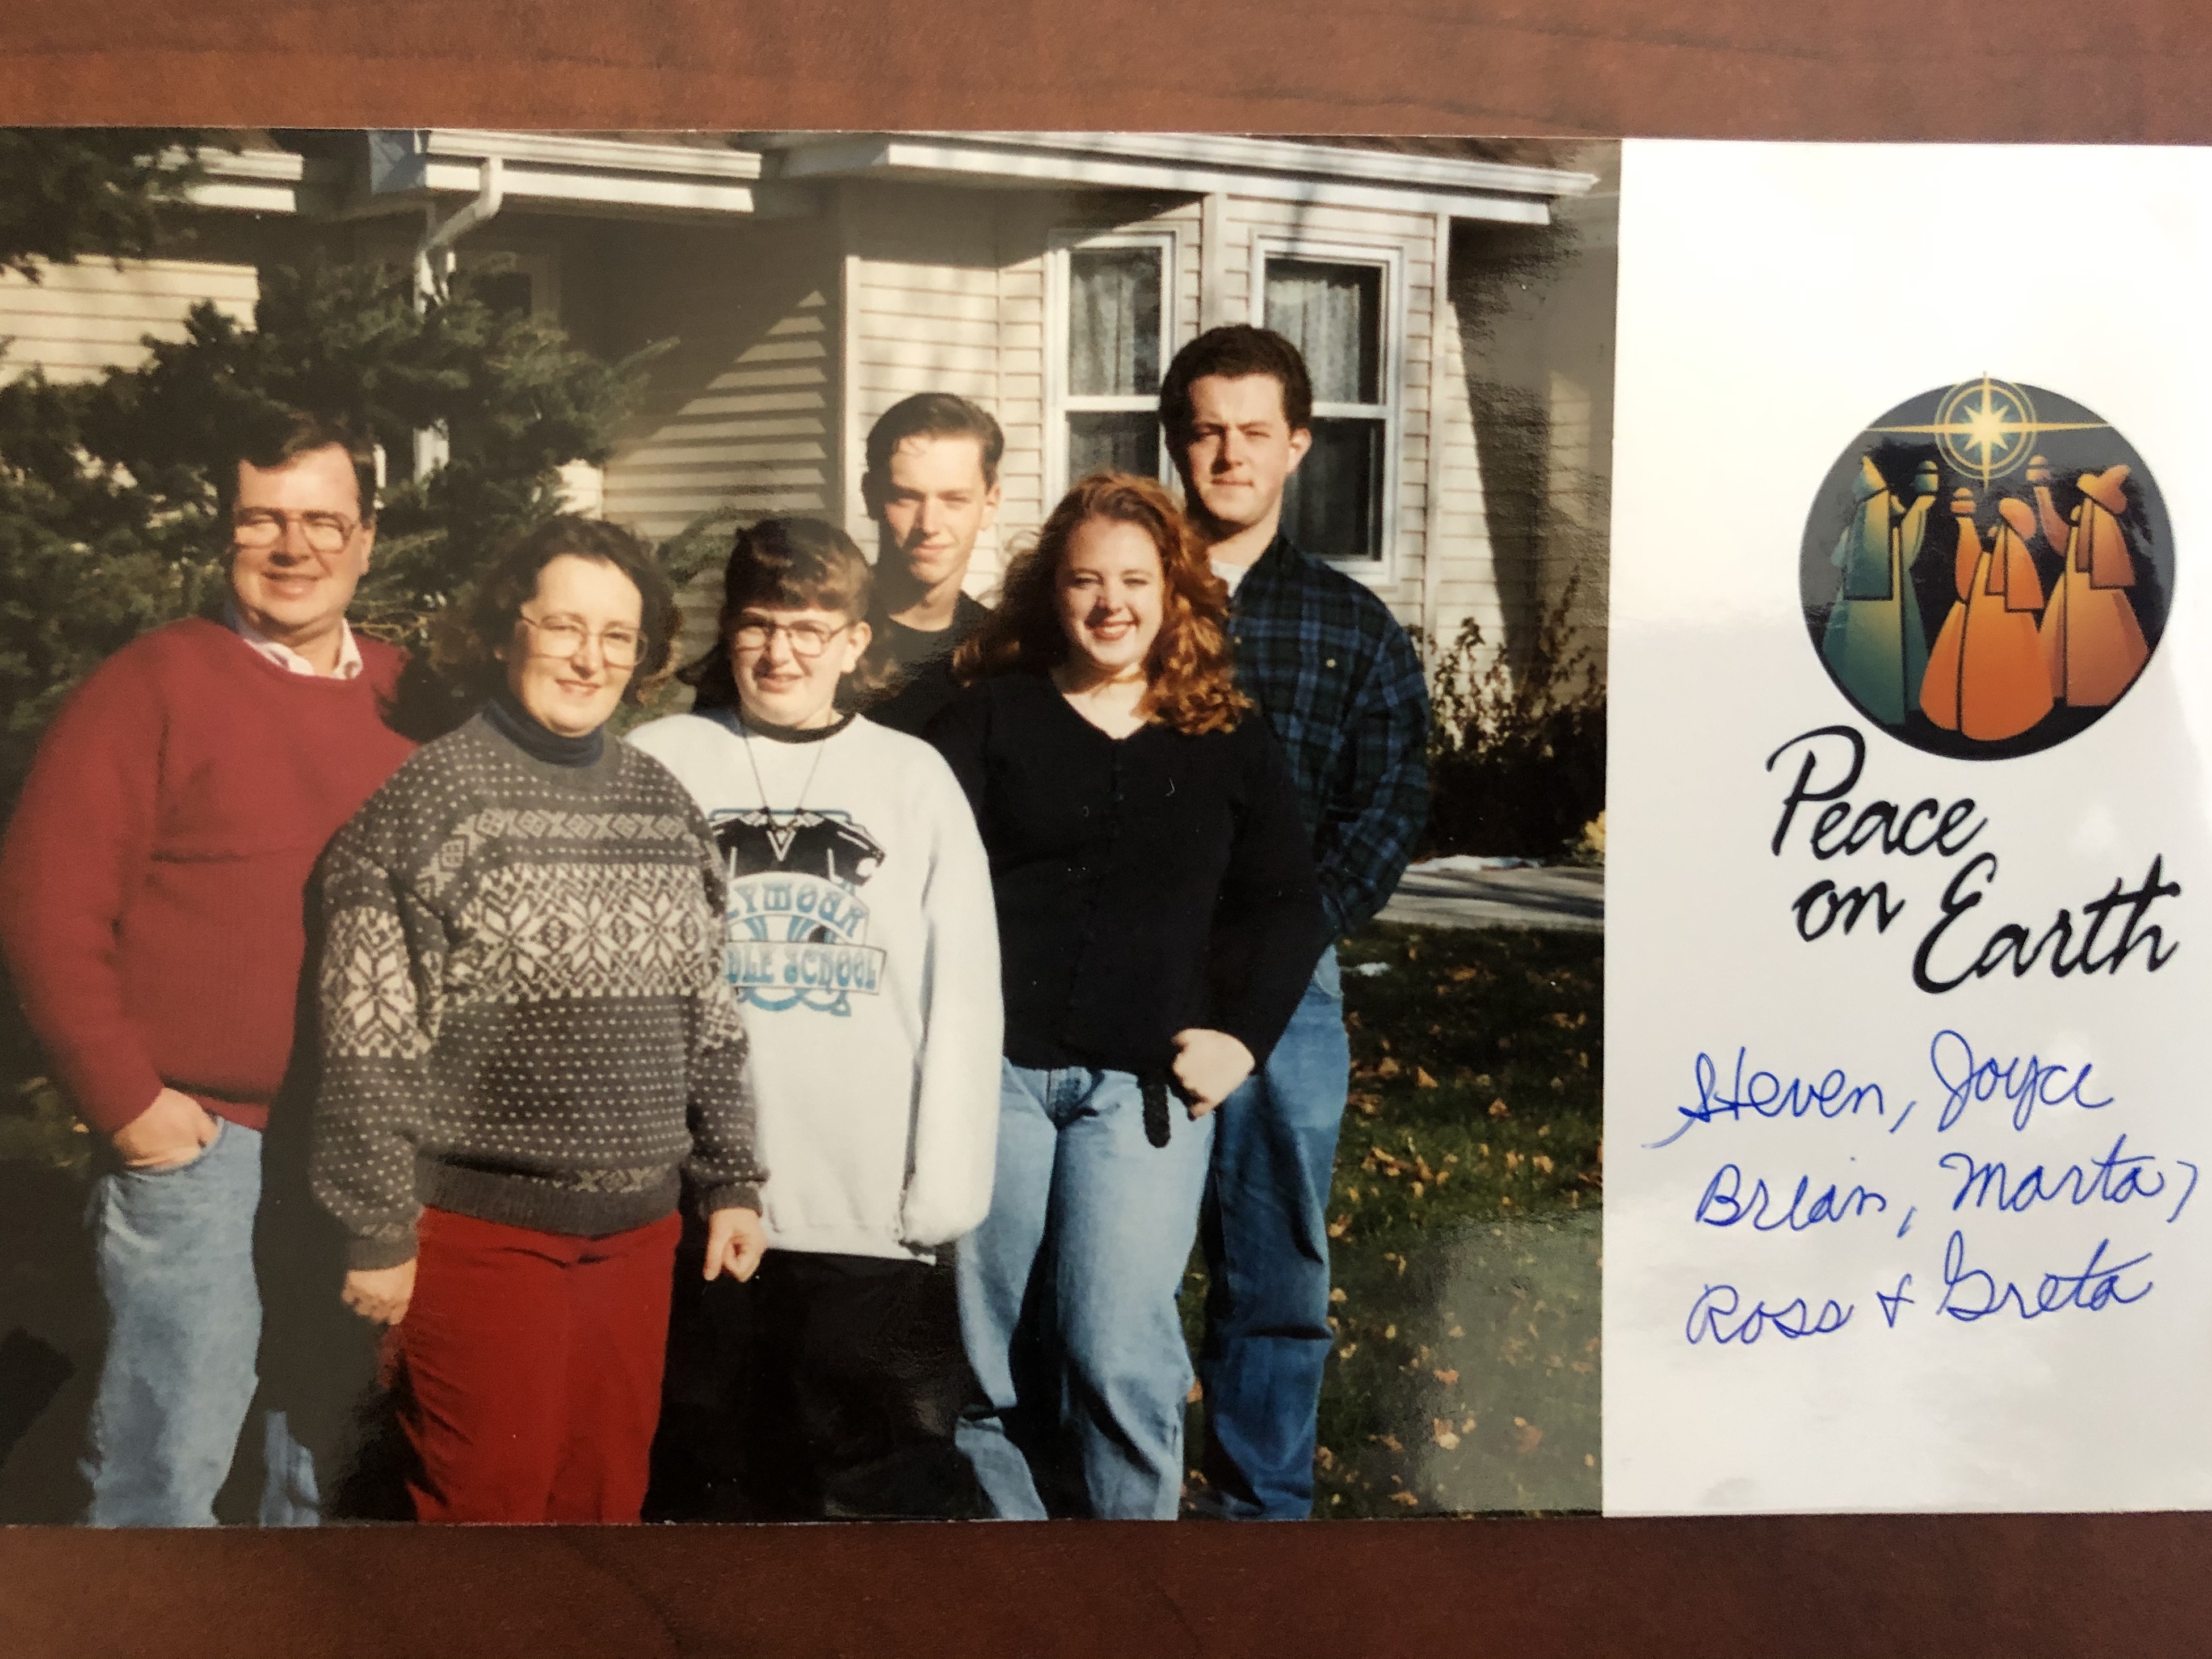 YMOUR
DLE SCHOOL
Peace
on Earth
Steven, Joyce
Brian, Marta,
Ross & Greta